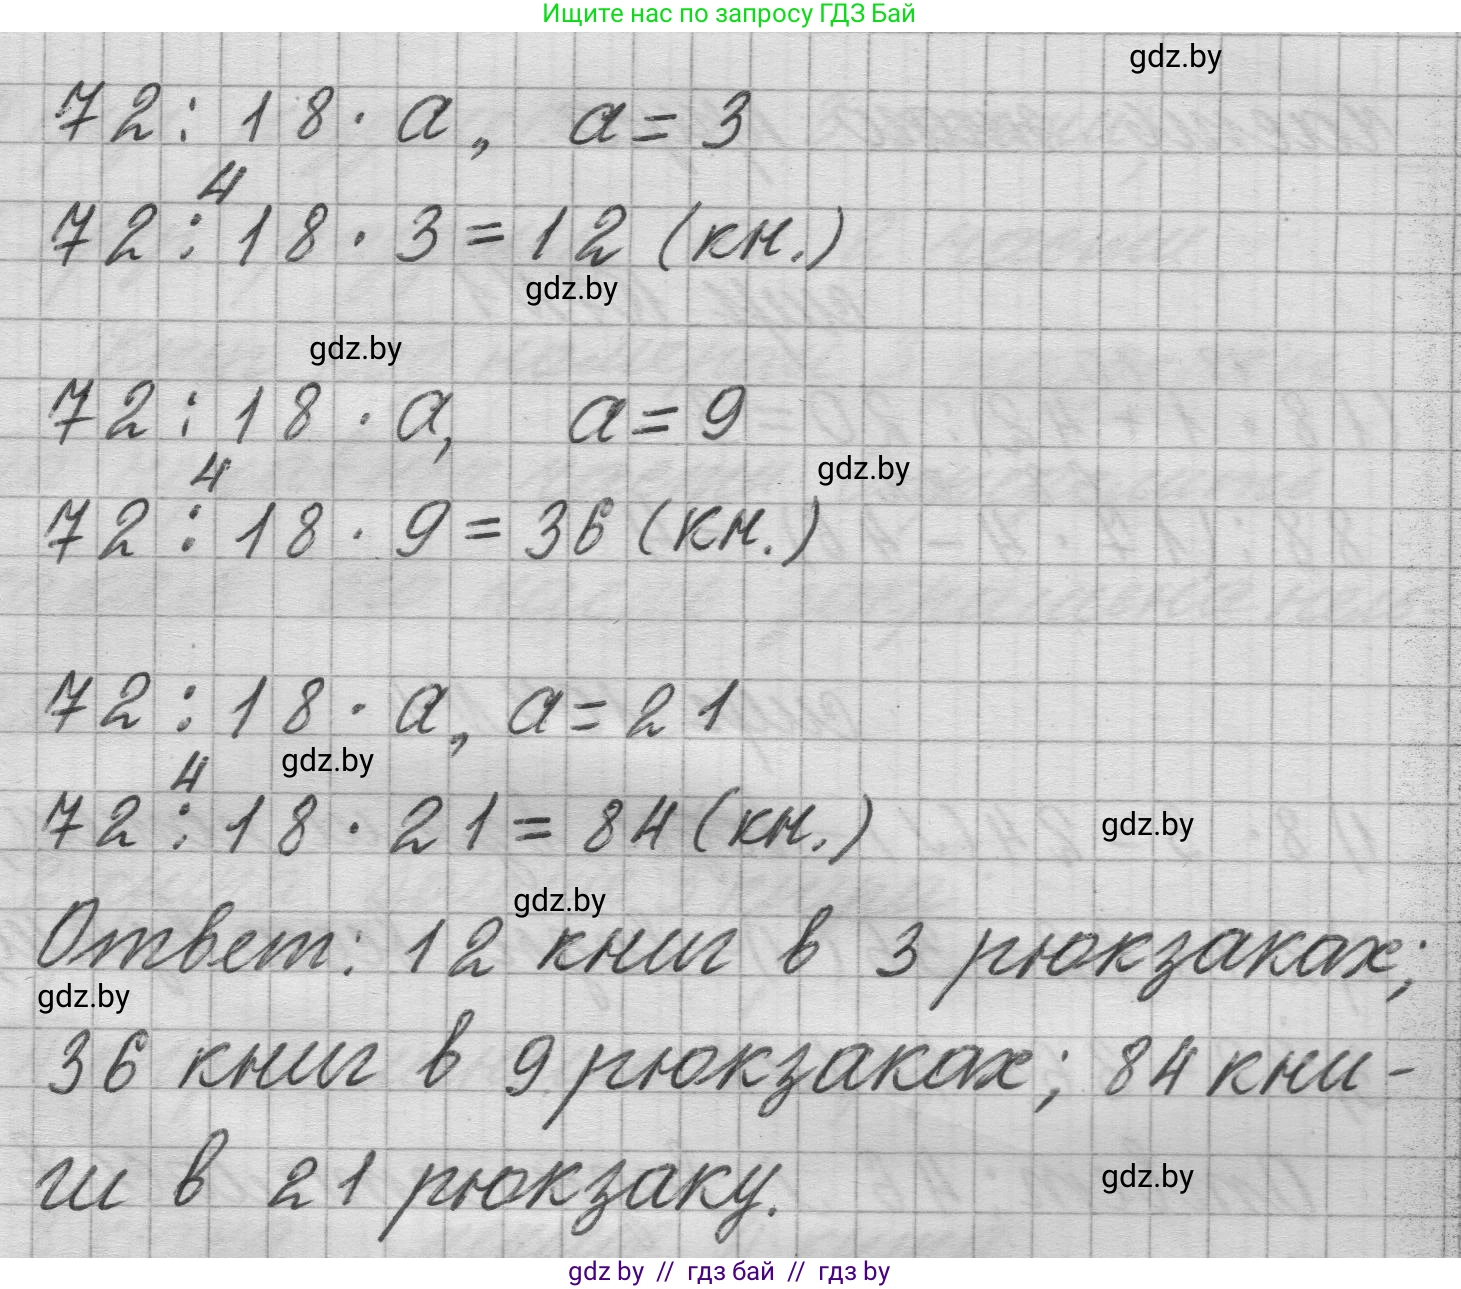 Ищите нас по запросу ГДЗ Бай
gdz.by
72 : 18 · а, а = 3
4
72 : 18 · 3 = 12 (кн.)
gdz.by
gdz.by
72 : 18 · а, а = 9
4
gdz.by
72 : 18 · 9 = 36 (кн.)
72 : 18 · а, а = 21
4
gdz.by
72 : 18 · 21 = 84 (кн.)
gdz.by
gdz.by
Ответ: 12 книг в 3 рюкзаках;
gdz.by
36 книг в 9 рюкзаках; 84 кни-
ги в 21 рюкзаку.
gdz.by
gdz by // гдз бай // гдз by